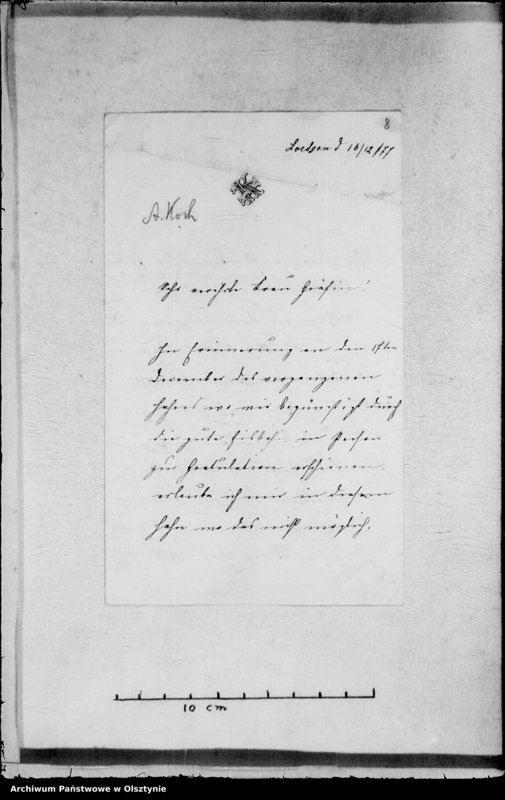 8
Loetzen d 16/12/77
A. Koch
Sehr verehrte Frau Gräfin!
In Erinnerung an den 17ten
December des vergangenen
Jahres wo wir begünstigt durch
die gute Eisbahn in person
zur Gratulation erschienen,
erlaube ich mir in diesem
Jahre wo das nicht möglich,
10 cm
Archiwum Państwowe w Olsztynie